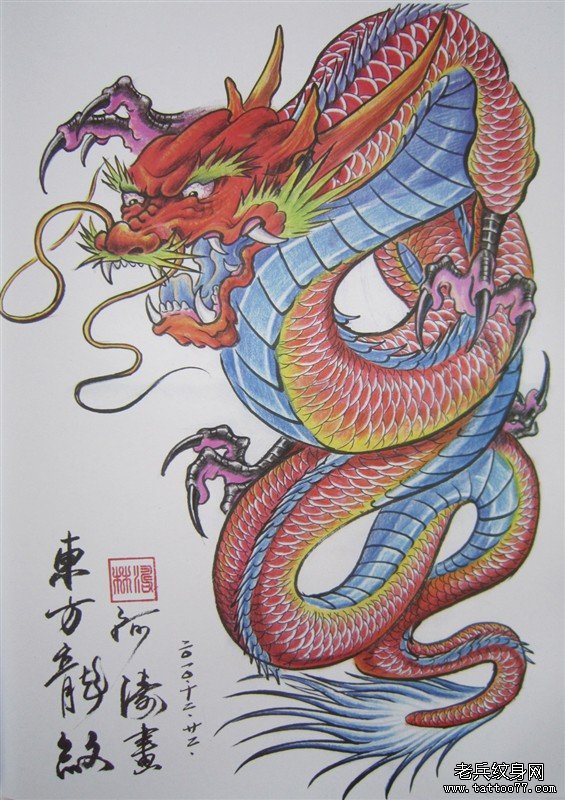 東方龍紋
阿濤畫
二〇一〇.十二.廿二.
老兵纹身网
www.tattoo77.com